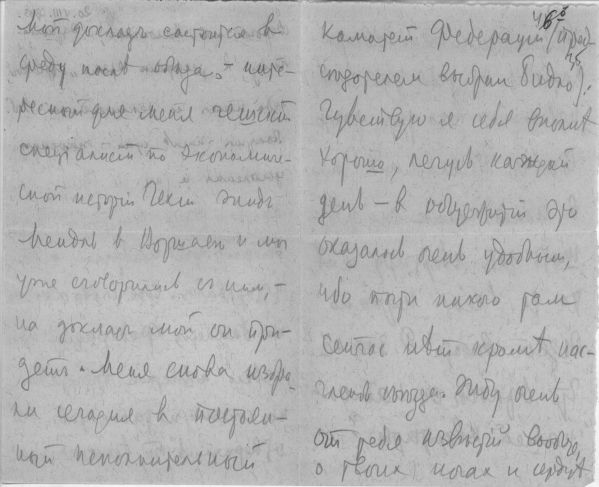 мой докладъ состоится в
среду после обеда. – инте-
ресный для меня чешскій
спеціалистъ по экономиче-
ской исторіи Чехіи
Мендль в Варшаве и мы
уже сговорились съ ним, –
на докладъ мой он при-
детъ. Меня снова избра-
ли сегодня в постоян-
ный исполнительный
46
комитетъ Федераціи (пред-
седателем выбран Бидло).
Чувствую я себя вполнѣ
хорошо, лечусь каждый
день – в общежитіи это
оказалось очень удобным,
ибо почти никого там
сейчас нѣтъ кромѣ нас –
членов съезда. Жду очень
от тебя извѣстій вообще,
о твоих ногах и сердцѣ